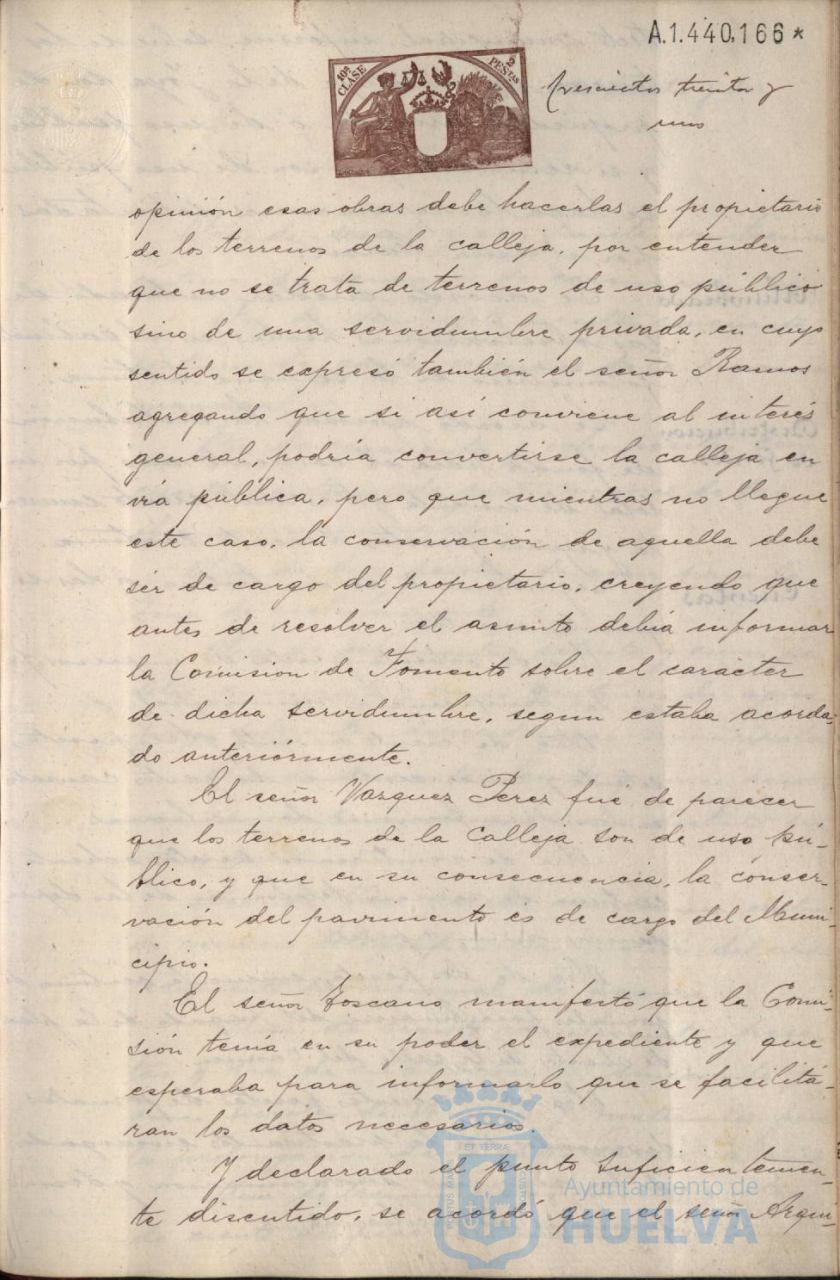 A.1.440,166*
10ª CLASE
2 PESETAS
trescientos treinta y
uno
opinión esas obras debe hacerlas el propietario
de los terrenos de la calleja, por entender
que no se trata de terrenos de uso público
sino de una servidumbre privada, en cuyo
sentido se expresó también el señor Ramos
agregando que si así conviene al interés
general, podría convertirse la calleja en
vía pública, pero que mientras no llegue
este caso, la conservación de aquella debe
ser de cargo del propietario, creyendo que
antes de resolver el asunto debía informar
la Comision de Fomento sobre el carácter
de dicha servidumbre, segun estaba acorda-
do anteriórmente.
El señor Vazquez Perez fué de parecer
que los terrenos de la Calleja son de uso pú-
blico, y que en su consecuencia, la conser-
vación del pavimento és de cargo del Muni-
cipio.
El señor Toscano manifestó que la Comi-
sión tenía en su poder el expediente y que
esperaba para informarlo que se facilitá-
ran los datos necesarios.
Y declarado el punto suficientemen-
te discutido, se acordó que el señor Arqui-
Ayuntamiento de
HUELVA